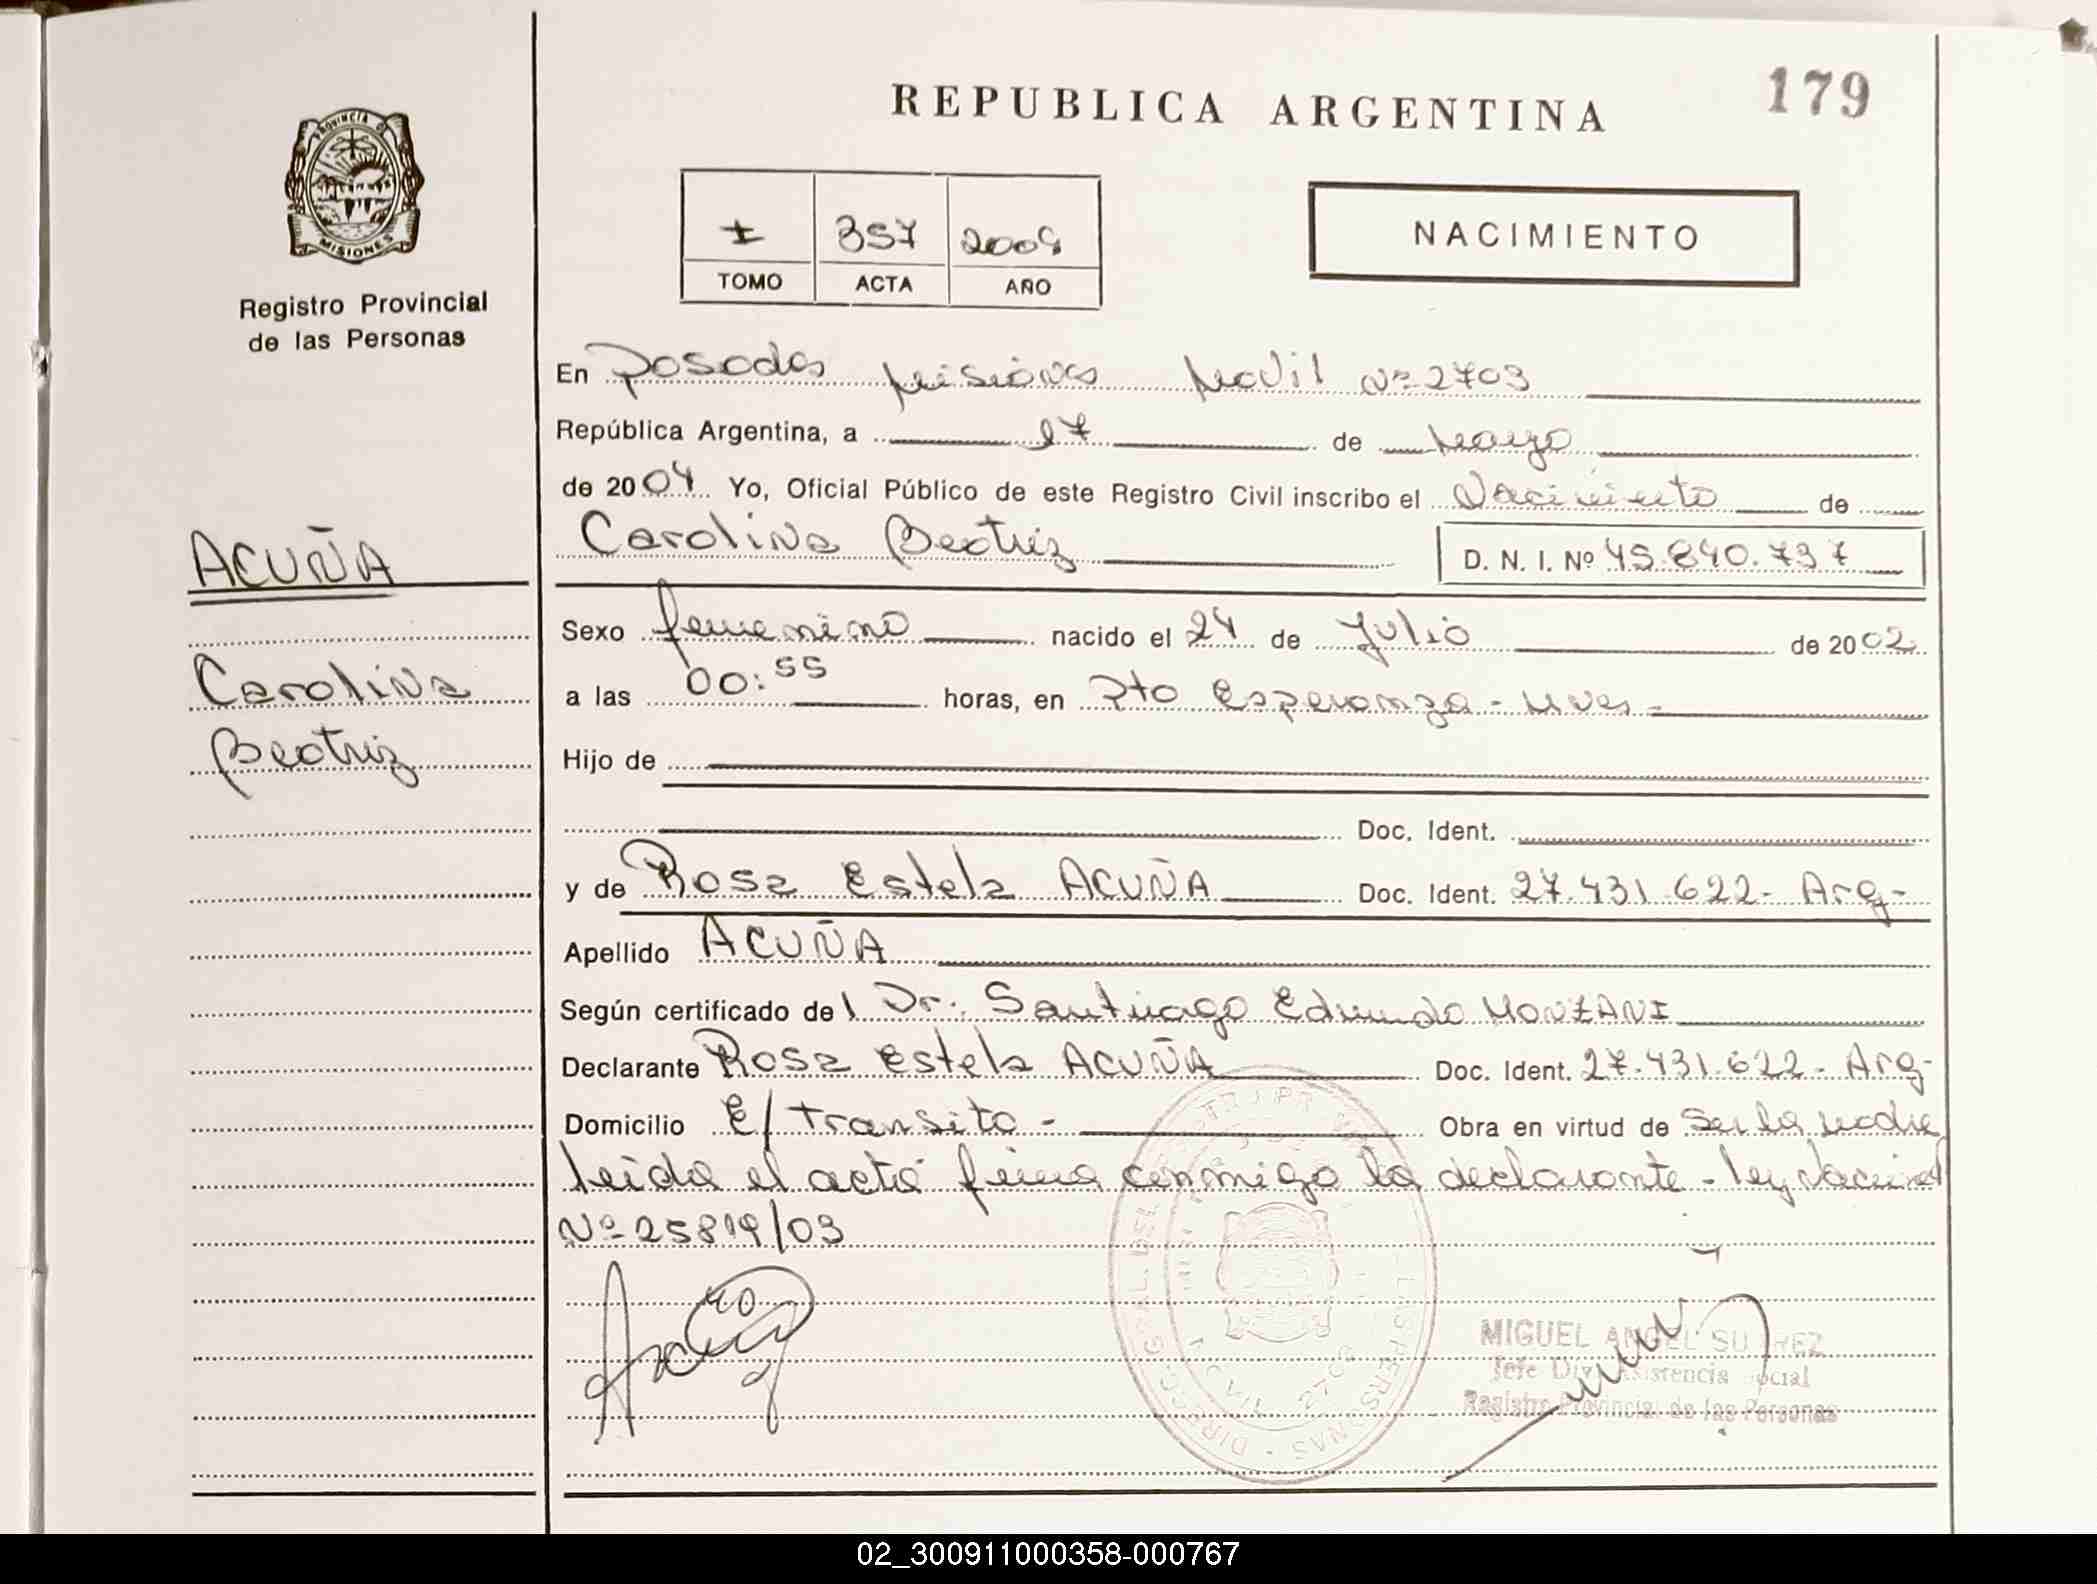 REPUBLICA ARGENTINA
179
PROVINCIA DE
MISIONES
Registro Provincial
de las Personas
I 357 2004
TOMO ACTA AÑO
NACIMIENTO
En Posadas Misiones Movil Nº 2703
República Argentina, a 27 de Mayo
de 2004 Yo, Oficial Público de este Registro Civil inscribo el Nacimiento de
ACUÑA
Carolina Beatriz D. N. I. Nº 45.840.737
Sexo femenino nacido el 24 de Julio de 2002
Carolina
a las 00:55 horas, en Pto Esperanza - Mnes -
Beatriz
Hijo de
Doc. Ident.
y de Rosa Estela ACUÑA Doc. Ident. 27.431.622 - Arg -
Apellido ACUÑA
Según certificado del Dr. Santiago Edmundo MONZANI
Declarante Rosa Estela ACUÑA Doc. Ident. 27.431.622 - Arg -
Domicilio E/ Transito - Obra en virtud de Ser la madre
leida el acta firma conmigo la declarante - ley Nacional
Nº 25819/03
MIGUEL ANGEL SUAREZ
Jefe Div. Asistencia Social
Registro Provincial de las Personas
02_300911000358-000767